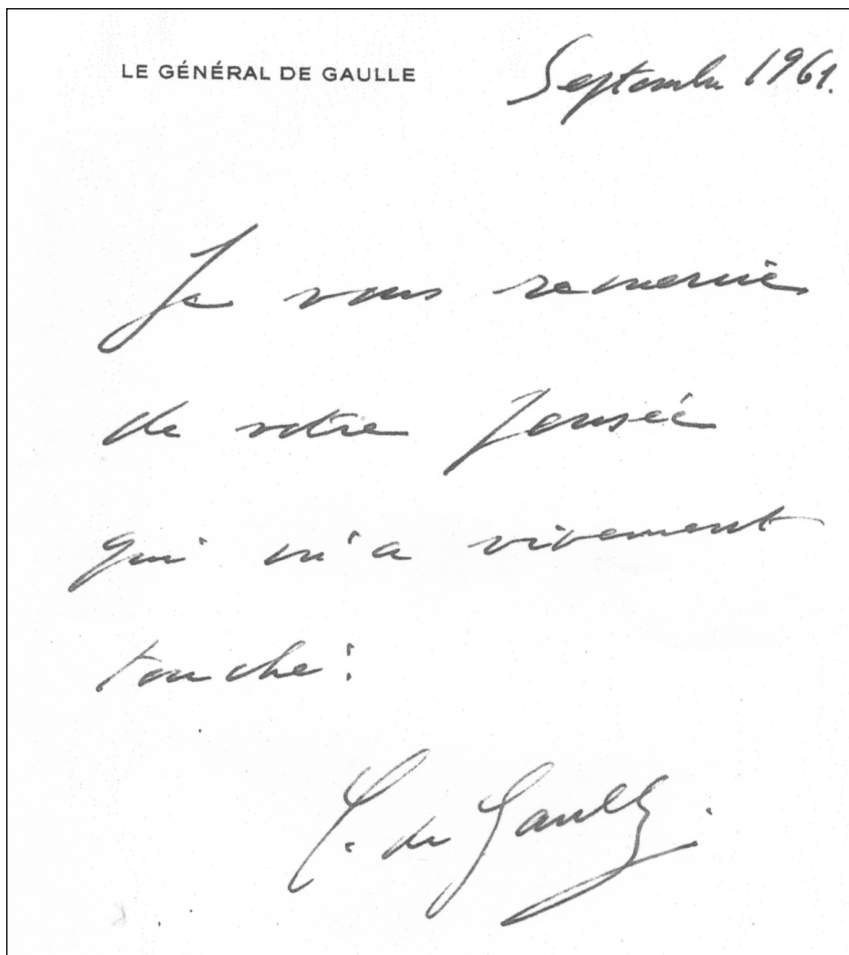 LE GÉNÉRAL DE GAULLE
Septembre 1961.
Je vous remercie
de votre pensée
qui m'a vivement
touché !
C. de Gaulle.